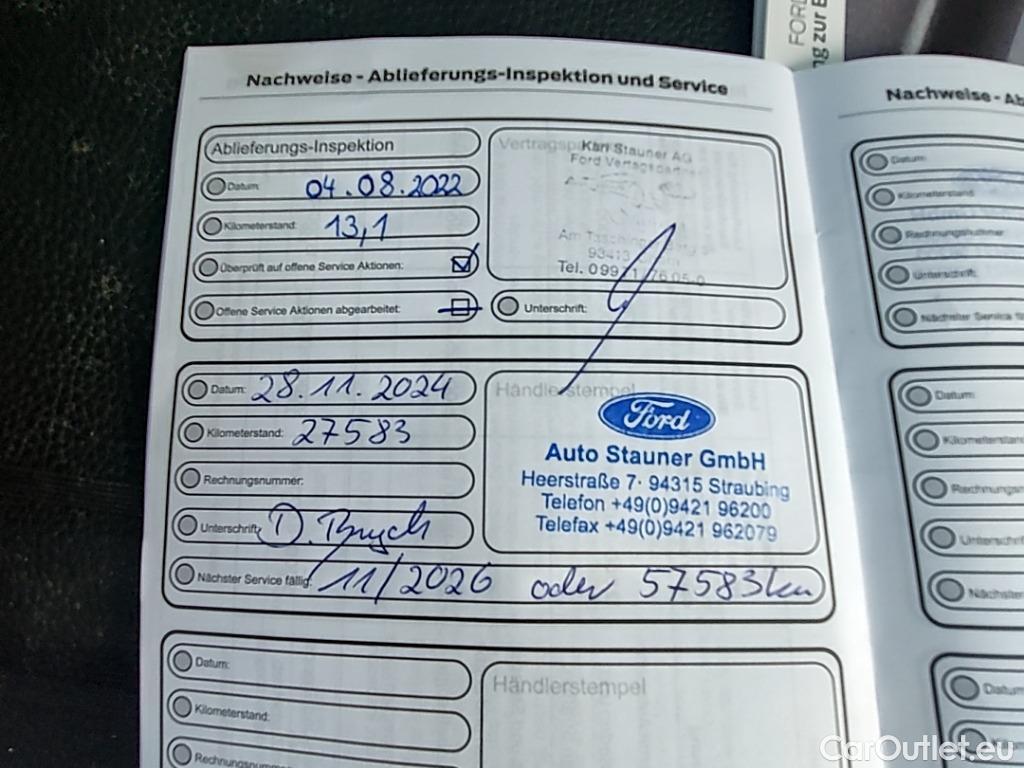 FORD
ng zur E
Nachweise - Ablieferungs-Inspektion und Service
Ablieferungs-Inspektion
Datum: 04.08.2022
Kilometerstand: 13,1
Überprüft auf offene Service Aktionen:
Offene Service Aktionen abgearbeitet:
Karl Stauner AG
Am
Tel.
Unterschrift:
Datum: 28.11.2024
Kilometerstand: 27583
Rechnungsnummer:
Unterschrift:
Nächster Service fällig: 11/2026 oder 57583km
Händlerstempel
Ford
Auto Stauner GmbH
Heerstraße 7· 94315 Straubing
Telefon +49(0)9421 96200
Telefax +49(0)9421 962079
Datum:
Kilometerstand:
Rechnungsnummer:
Händlerstempel
Nachweise - Ab
Datum:
Kilometerstand:
Rechnungsnummer
Unterschrift:
Nächster Service fä
Datum:
Kilometerstand
Rechnungsn
Unterschrif
Nächster
Datum
CarOutlet.eu